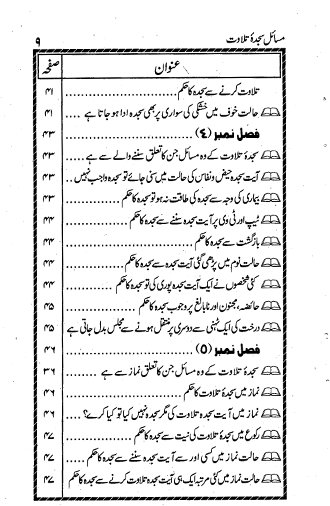 مسائل سجدۂ تلاوت ۹
عنوان صفحہ
تلاوت کرنے سے سجدہ کا حکم ........................ ۴۱
حالت خوف میں خشکی کی سواری پر بھی سجدہ ادا ہو جاتا ہے .... ۴۱
فصل نمبر (۴) ........................ ۴۳
سجدۂ تلاوت کے وہ مسائل جن کا تعلق سننے والے سے ہے ...... ۴۳
آیت سجدہ حیض و نفاس کی حالت میں سنی جائے تو سجدہ واجب نہیں .. ۴۳
بیماری کی وجہ سے سجدہ کی طاقت نہ ہو تو سجدہ کا حکم ........ ۴۳
ٹیپ اور ٹی وی پر آیت سجدہ سننے سے سجدہ کا حکم ............ ۴۴
بازگشت سے سجدہ کا حکم ........................ ۴۴
حالت نوم میں پڑھی گئی آیت سجدہ سے سجدہ کا حکم ............ ۴۴
کئی شخصوں نے ایک آیت سجدہ پوری کی تو سجدہ کا حکم ........ ۴۴
حائضہ، مجنون اور نابالغ پر وجوب سجدہ کا حکم ............ ۴۵
درخت کی ایک ٹہنی سے دوسری پر منتقل ہونے سے مجلس بدل جاتی ہے ۴۵
فصل نمبر (۵) ........................ ۴۶
سجدۂ تلاوت کے وہ مسائل جن کا تعلق نماز سے ہے .......... ۳۶
نماز میں سجدۂ تلاوت کا حکم ........................ ۴۶
نماز میں آیت سجدہ تلاوت کی مگر سجدہ نہیں کیا تو کیا کرے؟ .... ۴۶
رکوع میں سجدۂ تلاوت کی نیت سے سجدہ کا حکم .............. ۴۷
حالت نماز میں کسی اور سے آیت سجدہ سننے سے سجدہ کا حکم ...... ۴۷
حالت نماز میں کئی مرتبہ ایک ہی آیت سجدہ تلاوت کرنے سے سجدہ کا حکم ۴۷